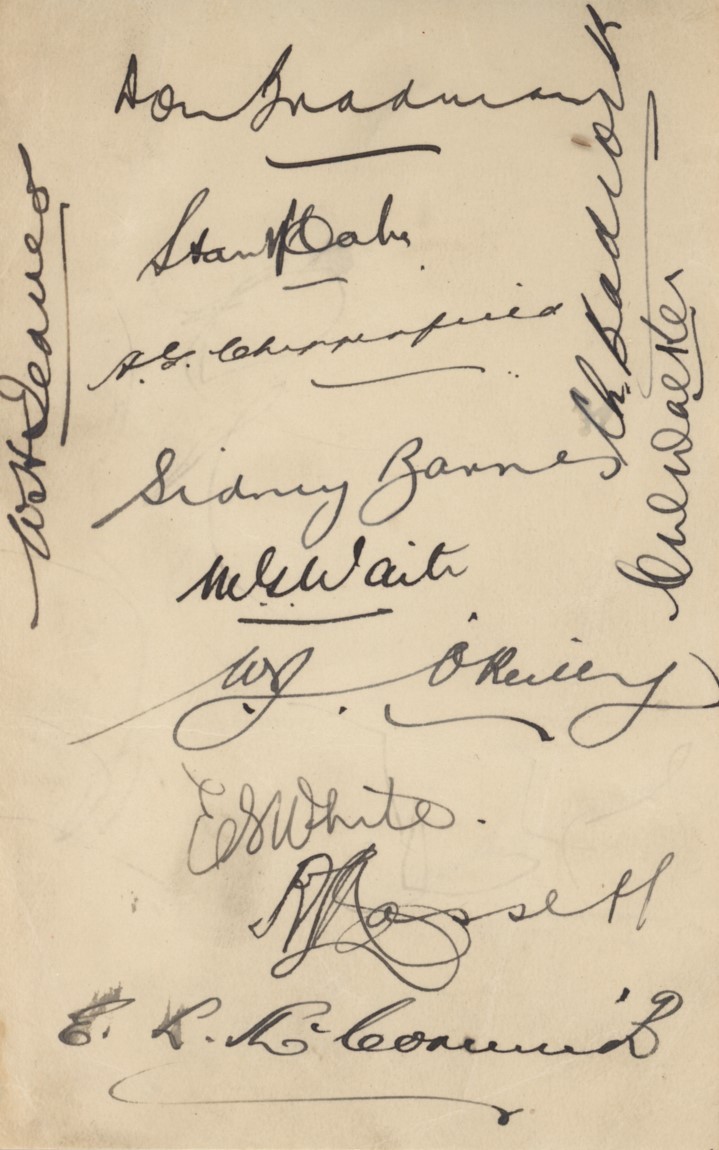 Don Bradman
Stan McCabe
A.G. Chipperfield
Sidney Barnes
M.G. Waite
W.J. O'Reilly
E S White.
A L Hassett
E. L. McCormick
W H Jeanes
Ch. Badcock
C W Walker